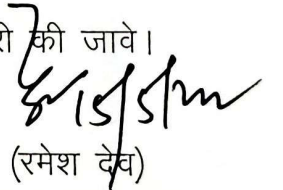 की जावे।
(रमेश देव)